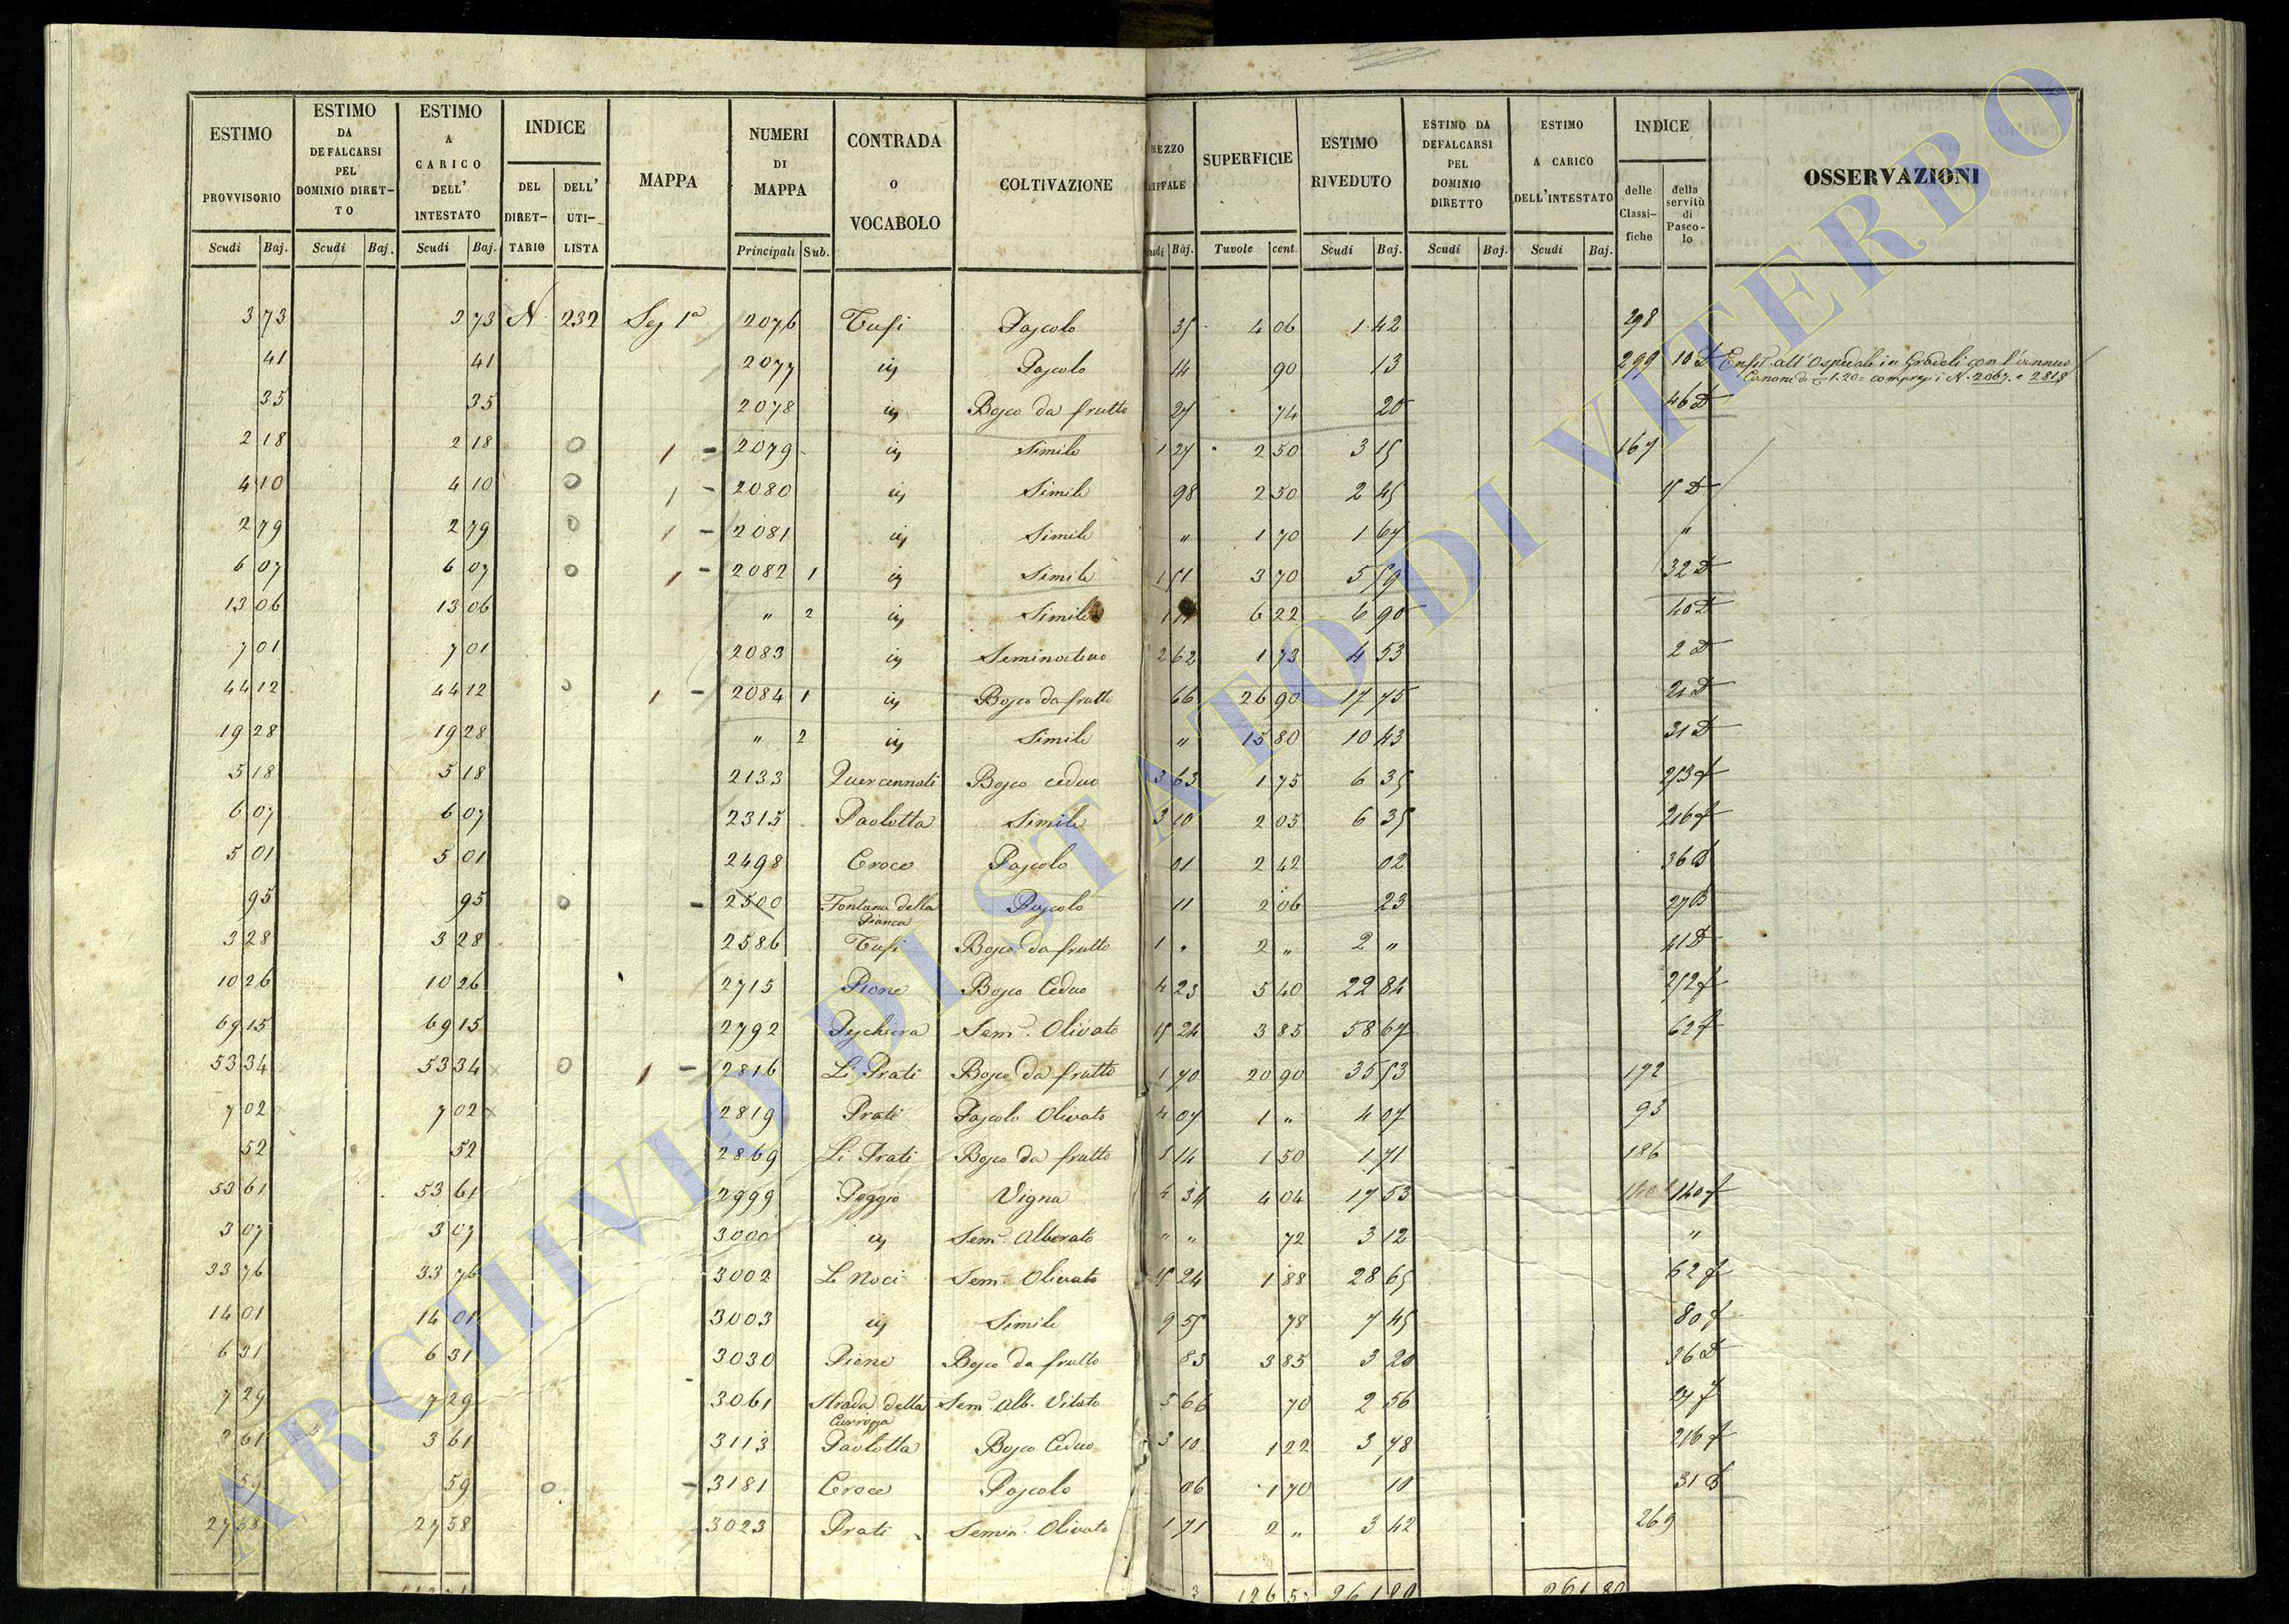 ESTIMO PROVVISORIO Scudi Baj.
ESTIMO DA DEFALCARSI PEL DOMINIO DIRETTO Scudi Baj.
ESTIMO A CARICO DELL' INTESTATO Scudi Baj.
INDICE DEL DIRETTARIO DELL' UTILISTA
MAPPA
NUMERI DI MAPPA Principali Sub.
CONTRADA O VOCABOLO
COLTIVAZIONE
Baj.
SUPERFICIE Tavole cent.
ESTIMO RIVEDUTO Scudi Baj.
ESTIMO DA DEFALCARSI PEL DOMINIO DIRETTO Scudi Baj.
ESTIMO A CARICO DELL'INTESTATO Scudi Baj.
INDICE delle Classifiche della servitù di Pascolo
OSSERVAZIONI
3 73 3 73 N. 232 Sez 1a 2076 Tufi Pascolo 35 4 06 1 42 298
41 41 2077 Pascolo 14 90 13 299 10 D Enfit. all'Ospedale in Gradoli con l'annuo
Canone di 1.20 compresi i N. 2067. e 2818
35 35 2078 Bosco da frutto 27 74 20 46 D
2 18 2 18 2079 Simile 1 27 2 50 3 15 167
4 10 4 10 2080 Simile 98 2 50 2 45 D
2 79 2 79 2081 Simile " 1 70 1 67 "
6 07 6 07 2082 1 Simile 1 51 3 70 5 59 32 D
13 06 13 06 " 2 Simile 6 22 6 90 40 D
7 01 7 01 2083 Seminativo 2 62 1 73 4 53 2 D
44 12 44 12 2084 1 Bosco da frutto 66 26 90 17 75 21 D
19 28 19 28 " 2 Simile " 15 80 10 43 31 D
5 18 5 18 2133 Quercennali Bosco ceduo 3 63 1 75 6 35
6 07 6 07 2315 Paolotta Simile 3 10 2 05 6 35 216
5 01 5 01 2498 Croce Pascolo 01 2 42 02 36
95 95 2500 Fontana della Pianca Pascolo 11 2 06 23 27
3 28 3 28 2586 Tufi Bosco da frutto 1 2 " 2 " 41 D
10 26 10 26 2715 Pione Bosco Ceduo 4 23 5 40 22 84
69 15 69 15 2792 Pischiera Sem. Olivato 15 24 3 85 58 67 62
53 34 53 34 2816 Li Prati Bosco da frutto 1 70 20 90 35 53 172
7 02 7 02 2819 Prati Pascolo Olivato 4 07 1 " 4 07 93
52 52 2869 Li Prati Bosco da frutto 1 14 1 50 1 71 186
53 61 53 61 2999 Poggio Vigna 4 34 4 04 17 53 140
3 07 3 07 3000 Sem. Alberato " " 72 3 12 "
33 76 33 76 3002 Le Noci Sem. Olivato 15 24 1 88 28 65 62
14 01 14 01 3003 Simile 9 55 78 7 45 80
6 31 6 31 3030 Pione Bosco da frutto 83 3 85 3 20 36 D
7 29 7 29 3061 Strada della Carrozza Sem. Alb. Vitato 3 66 70 2 56
3 61 3 61 3113 Paolotta Bosco Ceduo 3 10 1 22 3 78 216
59 59 3181 Croce Pascolo 06 1 70 10 31
27 58 27 58 3023 Prati Semin. Olivato 1 71 2 " 3 42 269
126 5 261 80 261 80
ARCHIVIO DI STATO DI VITERBO